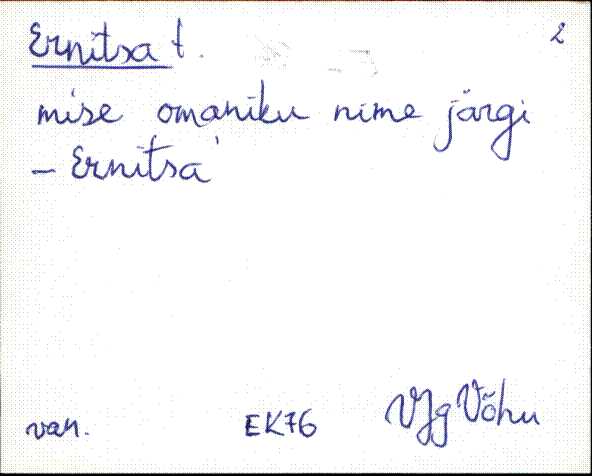 Ernitsa t. 2
mise omaniku nime järgi
– Ernitsa'
van. EK76 VJg Võhu